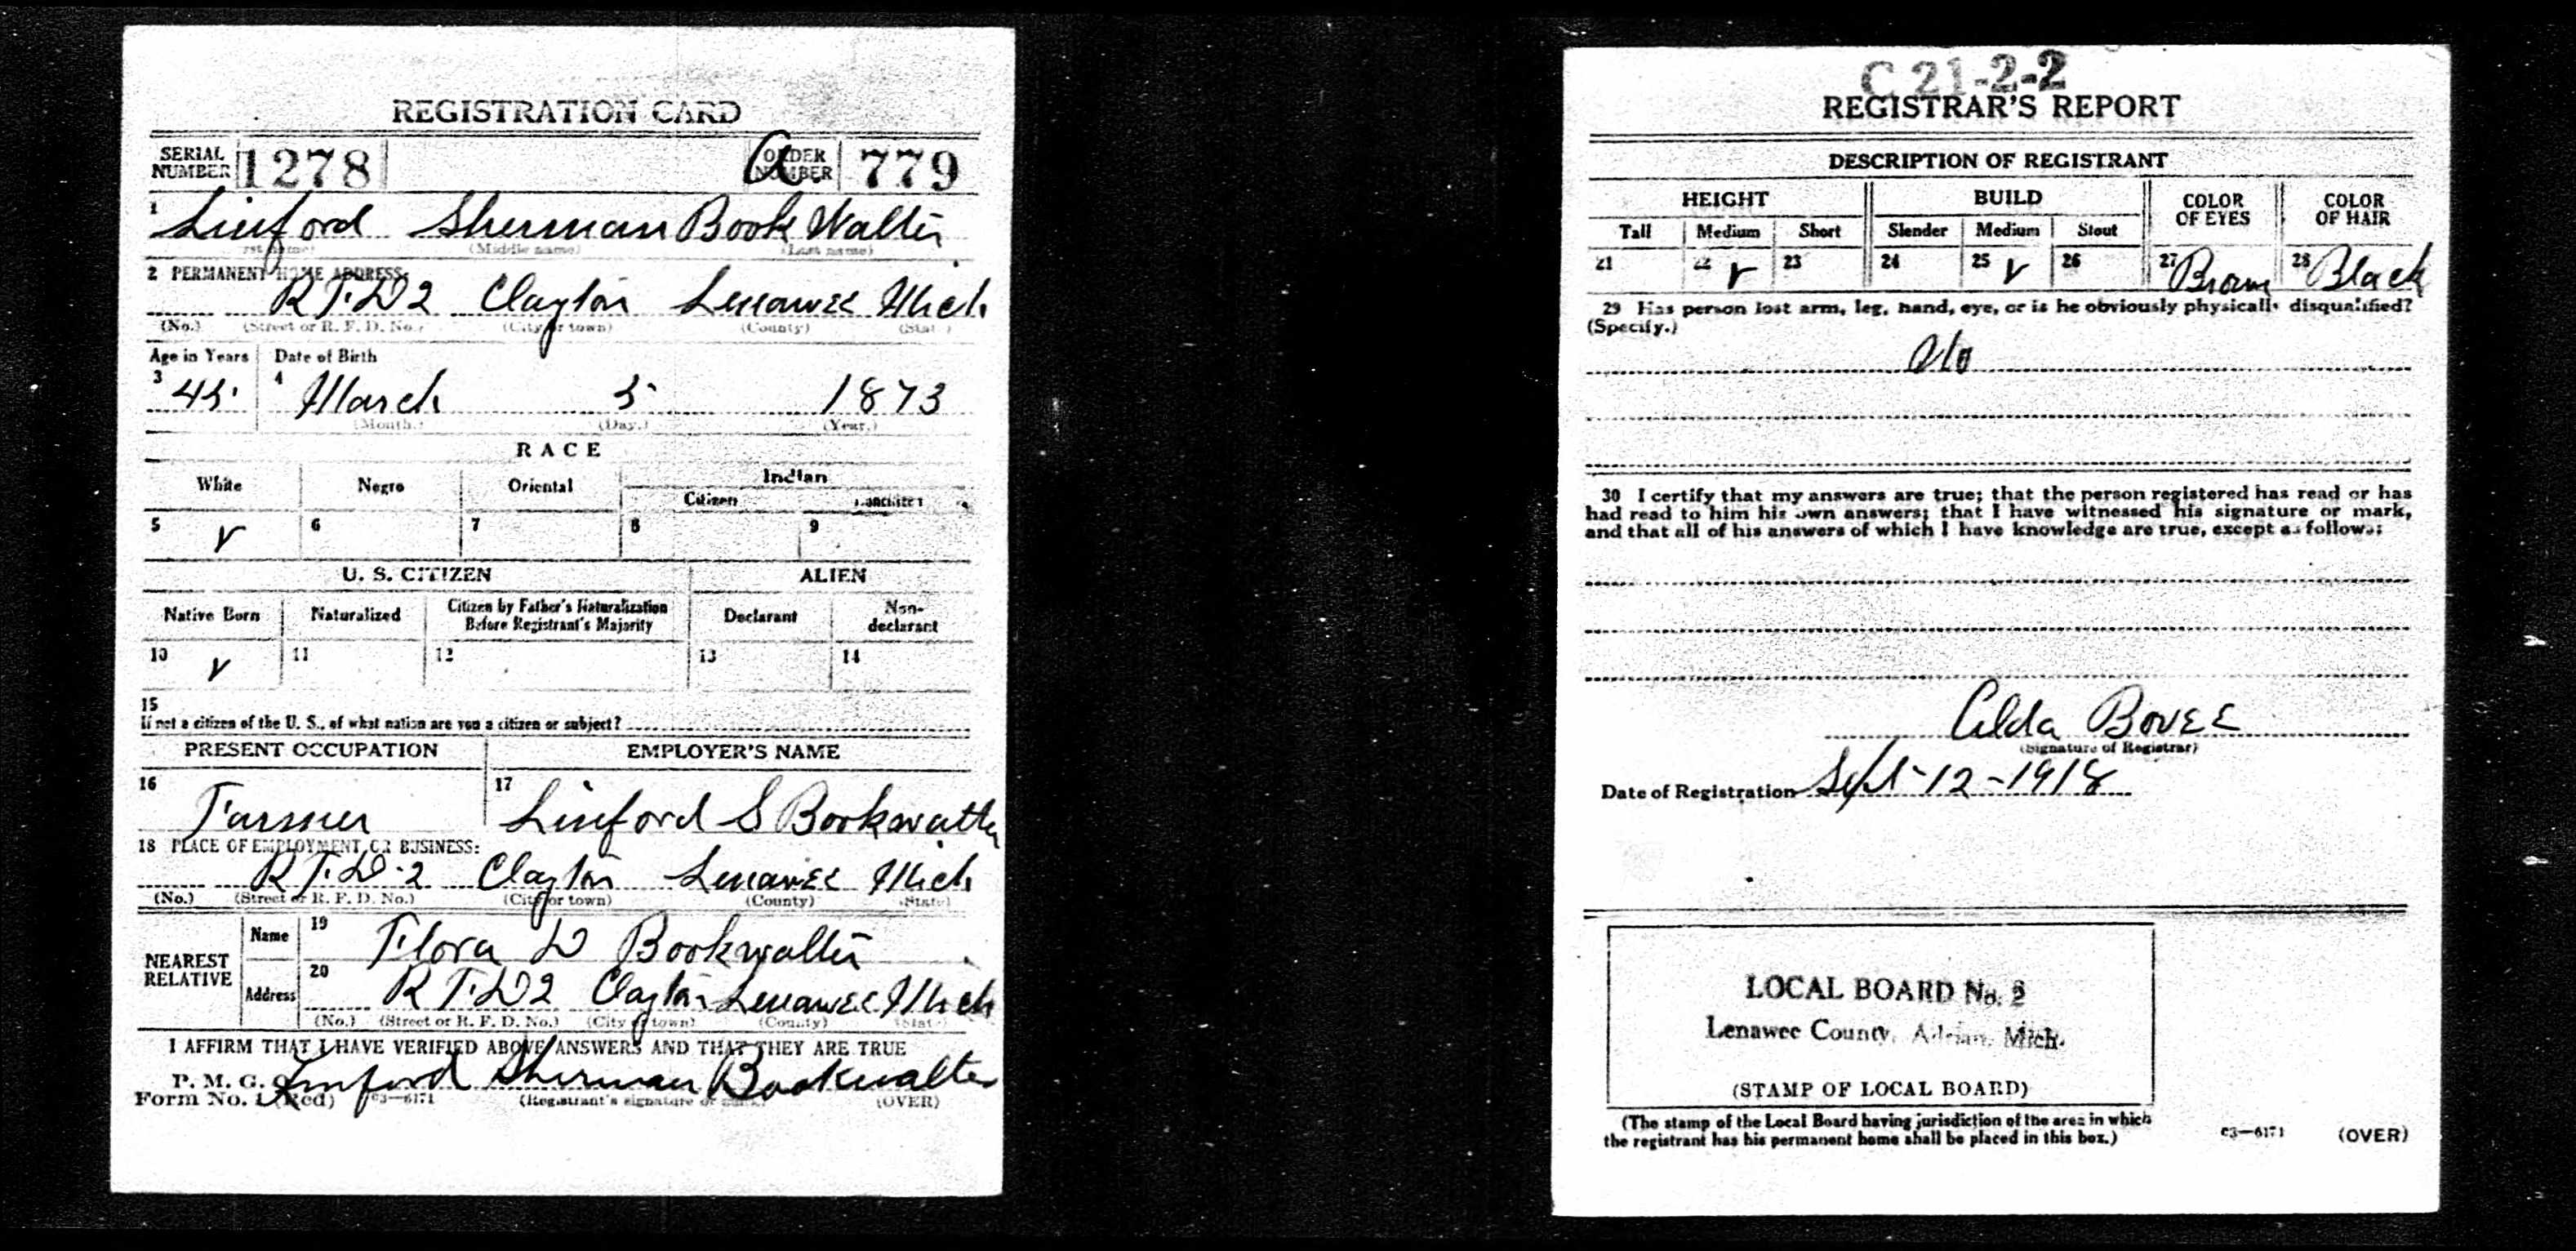 REGISTRATION CARD
SERIAL NUMBER 1278 A ORDER NUMBER 779
1 Linford Sherman Book Walter
(Middle name) (Last name)
2 PERMANENT HOME ADDRESS:
R F. D 2 Clayton Lenawee Mich
(No.) (Street or R. F. D. No.) (City or town) (County) (State)
Age in Years Date of Birth
3 45 4 March 5 1873
(Month.) (Day.) (Year.)
RACE
White Negro Oriental Indian
Citizen
5 V 6 7 8 9
U. S. CITIZEN ALIEN
Native Born Naturalized Citizen by Father's Naturalization Before Registrant's Majority Declarant Non-declarant
10 V 11 12 13 14
15
If not a citizen of the U. S., of what nation are you a citizen or subject?
PRESENT OCCUPATION EMPLOYER'S NAME
16 Farmer 17 Linford S Bookwalter
18 PLACE OF EMPLOYMENT OR BUSINESS:
R F. D. 2 Clayton Lenawee Mich
(No.) (Street or R. F. D. No.) (City or town) (County) (State)
NEAREST RELATIVE
Name 19 Flora D Bookwalter
Address 20 R F. D 2 Clayton Lenawee Mich
(No.) (Street or R. F. D. No.) (City or town) (County) (State)
I AFFIRM THAT I HAVE VERIFIED ABOVE ANSWERS AND THAT THEY ARE TRUE
P. M. G. O. Linford Sherman Bookwalter
Form No. 1 (Red) 03—6171 (Registrant's signature or mark) (OVER)
C 21-2-2
REGISTRAR'S REPORT
DESCRIPTION OF REGISTRANT
HEIGHT BUILD COLOR OF EYES COLOR OF HAIR
Tall Medium Short Slender Medium Stout
21 22 V 23 24 25 V 26 27 Brown 28 Black
29 Has person lost arm, leg, hand, eye, or is he obviously physically disqualified?
(Specify.)
No
30 I certify that my answers are true; that the person registered has read or has
had read to him his own answers; that I have witnessed his signature or mark,
and that all of his answers of which I have knowledge are true, except as follows:
Alda Bovee
(Signature of Registrar)
Date of Registration Sept-12-1918
LOCAL BOARD No. 2
Lenawee County, Adrian, Mich.
(STAMP OF LOCAL BOARD)
(The stamp of the Local Board having jurisdiction of the area in which
the registrant has his permanent home shall be placed in this box.)
03—6171 (OVER)